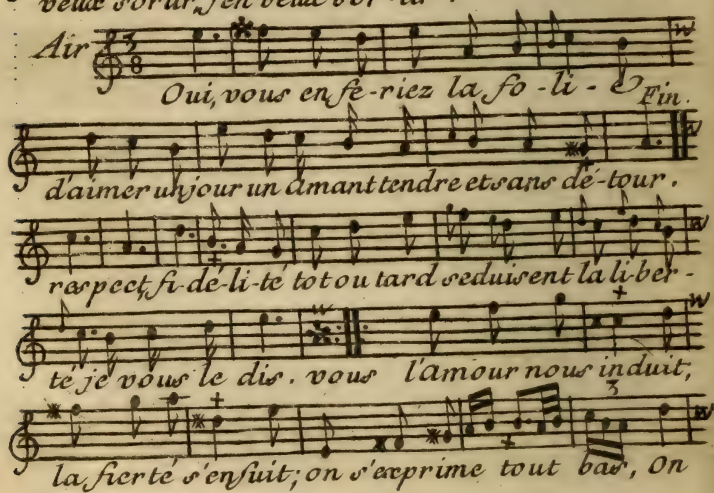 veux sortir, j'en veux sor-tir.
Air 3 8
Oui, vous en fe-riez la fo-li-e Fin.
d'aimer un jour un amant tendre et sans dé-tour.
respect, fi-dé-li-té tot ou tard seduisent la li-ber-
té je vous le dis. vous l'amour nous induit;
3
la fierté s'enfuit; on s'exprime tout bas, On